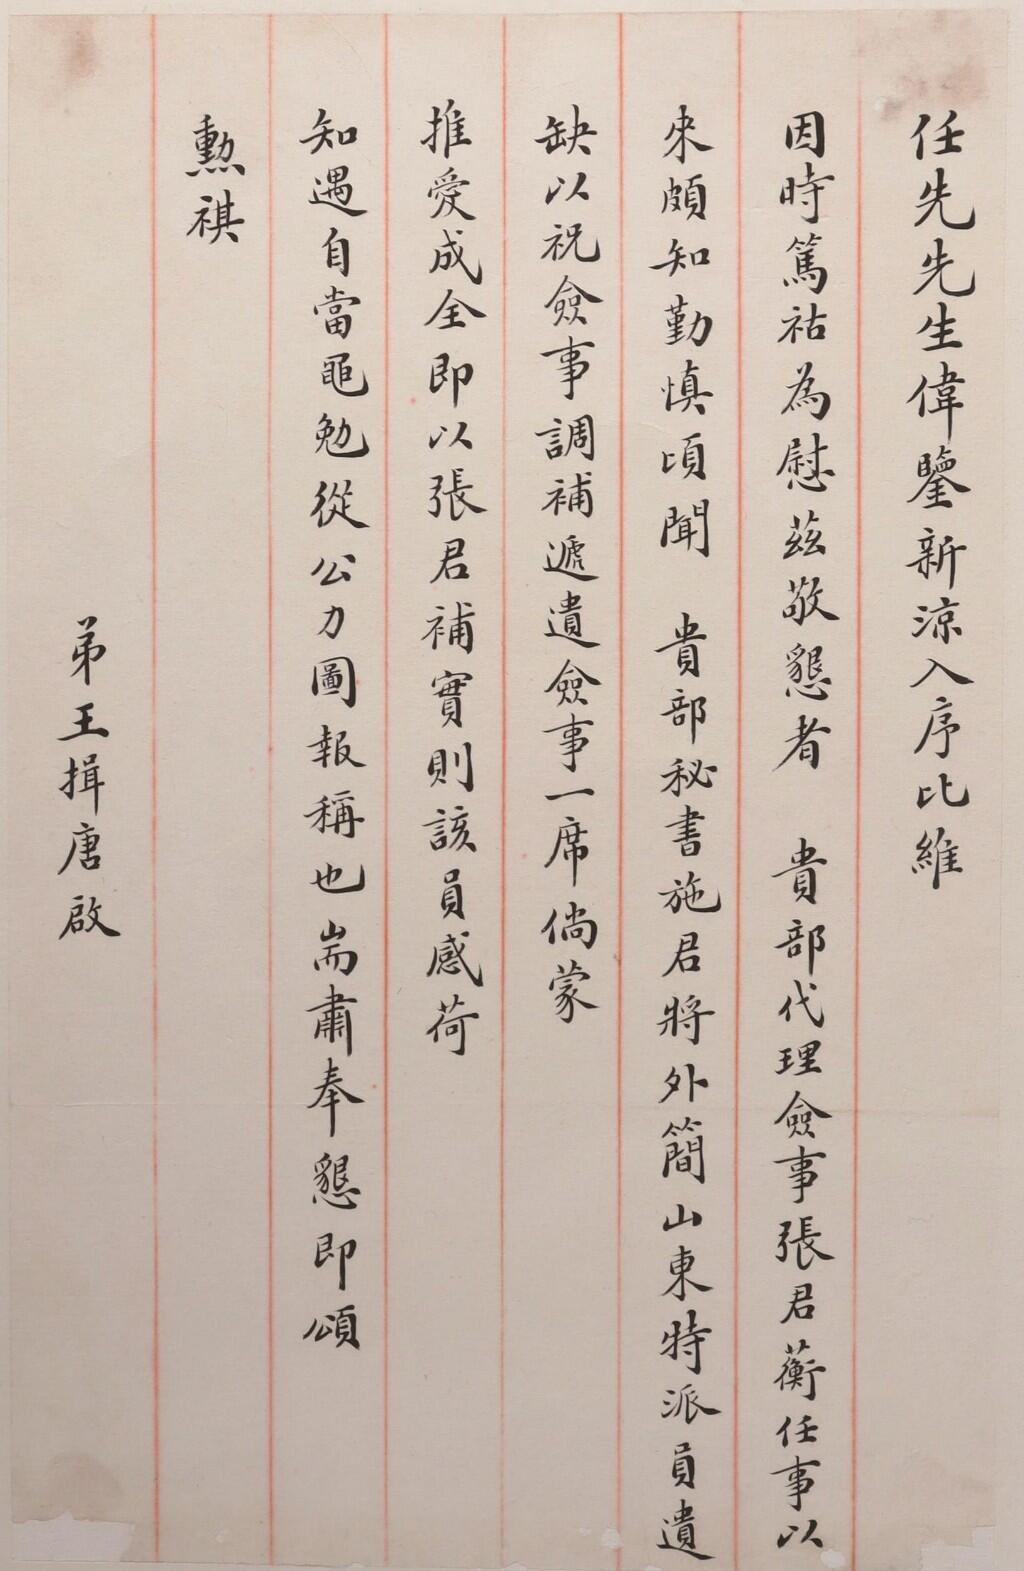 任先先生偉鑒新涼入序比維
因時篤祜為慰茲敬懇者　貴部代理僉事張君蘅任事以
來頗知勤慎頃聞　貴部秘書施君將外簡山東特派員遺
缺以祝僉事調補遞遺僉事一席倘蒙
推愛成全即以張君補實則該員感荷
知遇自當黽勉從公力圖報稱也耑肅奉懇即頌
勲祺
弟王揖唐啟